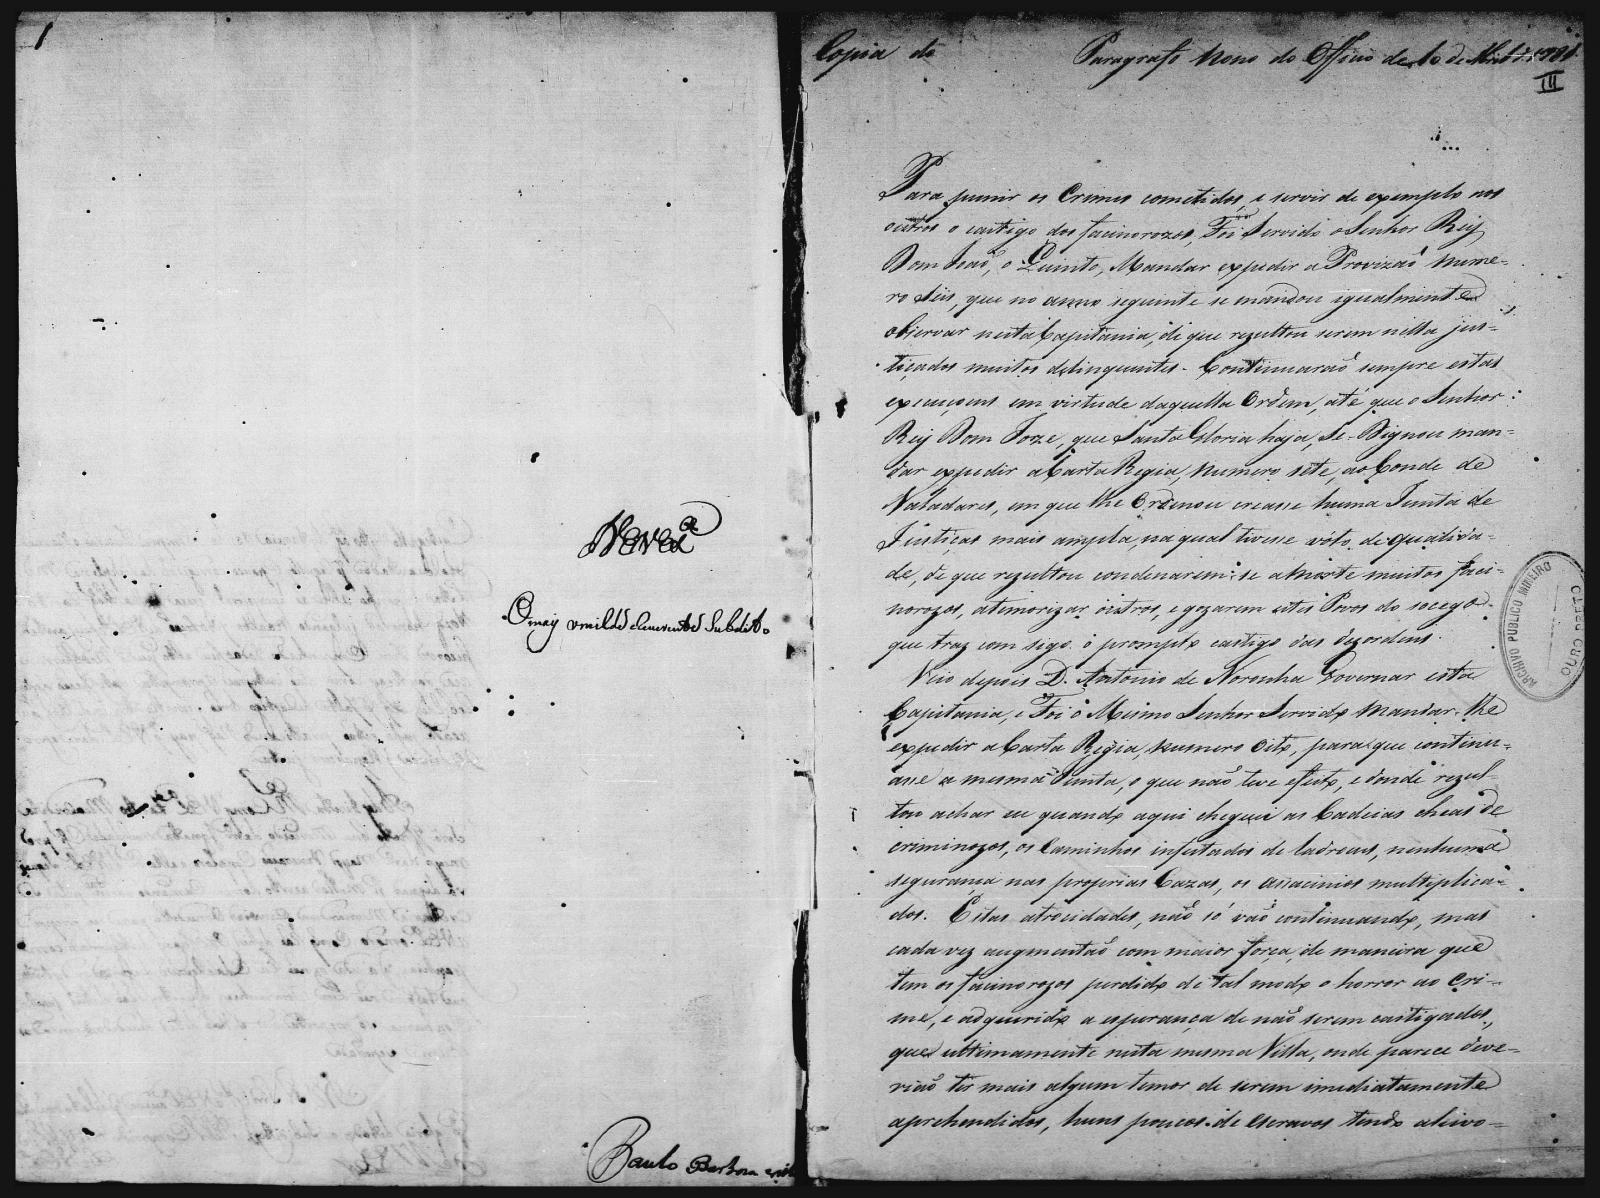 1
Neves
O maiz umilde e Subdito
Paulo Barboza
Copia do Paragrafo Nono do Officio de 10 de
III
Para punir os Crimes cometidos, e servir de exemplo nos
outros o castigo dos facinorozos, Foi Servido o Senhor Rey
Dom Joaõ, o Quinto, Mandar expedir a Provizaõ Nume-
ro seis, que no anno seguinte se mandou igualmente
observar nesta Capitania, de que rezultou serem nella jus-
tiçados muitos delinquentes. Continuaraõ sempre estas
execuçoens em virtude daquella Ordem, até que o Senhor
Rey Dom Joze, que Santa Gloria haja, Se Dignou man-
dar expedir a Carta Regia, Numero sete, ao Conde de
Valadares, em que lhe Ordenou creasse huma Junta de
Justiças mais ampla, na qual tivesse vóto de qualida-
de, de que rezultou condenarem-se a morte muitos faci-
norozos, atemorizar outros, e gozarem estes Povos do socego
que traz com sigo o prompto castigo das dezordens.
Veio depois D. Antonio de Noronha Governar esta
Capitania, e Foi o Mesmo Senhor Servido Mandar-lhe
expedir a Carta Regia, Numero Oito, para que continu-
asse a mesma Junta, o que naõ teve efeito, e donde rezul-
tou achar eu quando aqui cheguei as Cadeias cheas de
criminozos, os Caminhos infestados de ladroens, nenhuma
segurança nas proprias Cazas, os assacinios multiplica-
dos. Estas atrocidades, naõ só vaõ continuando, mas
cada vez augmentaõ com maior força, de maneira que
tem os facinorozos perdido de tal modo o horror ao Cri-
me, e adquirido a esperança de naõ serem castigados,
que ultimamente nesta mesma Villa, onde parece deve-
riaõ ter mais algum temor de serem imediatamente
aprehendidos, huns poucos de escravos tendo alevo-
ARCHIVO PUBLICO MINEIRO
OURO PRETO